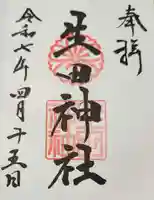 奉拝
生田神社
令和七年四月十五日